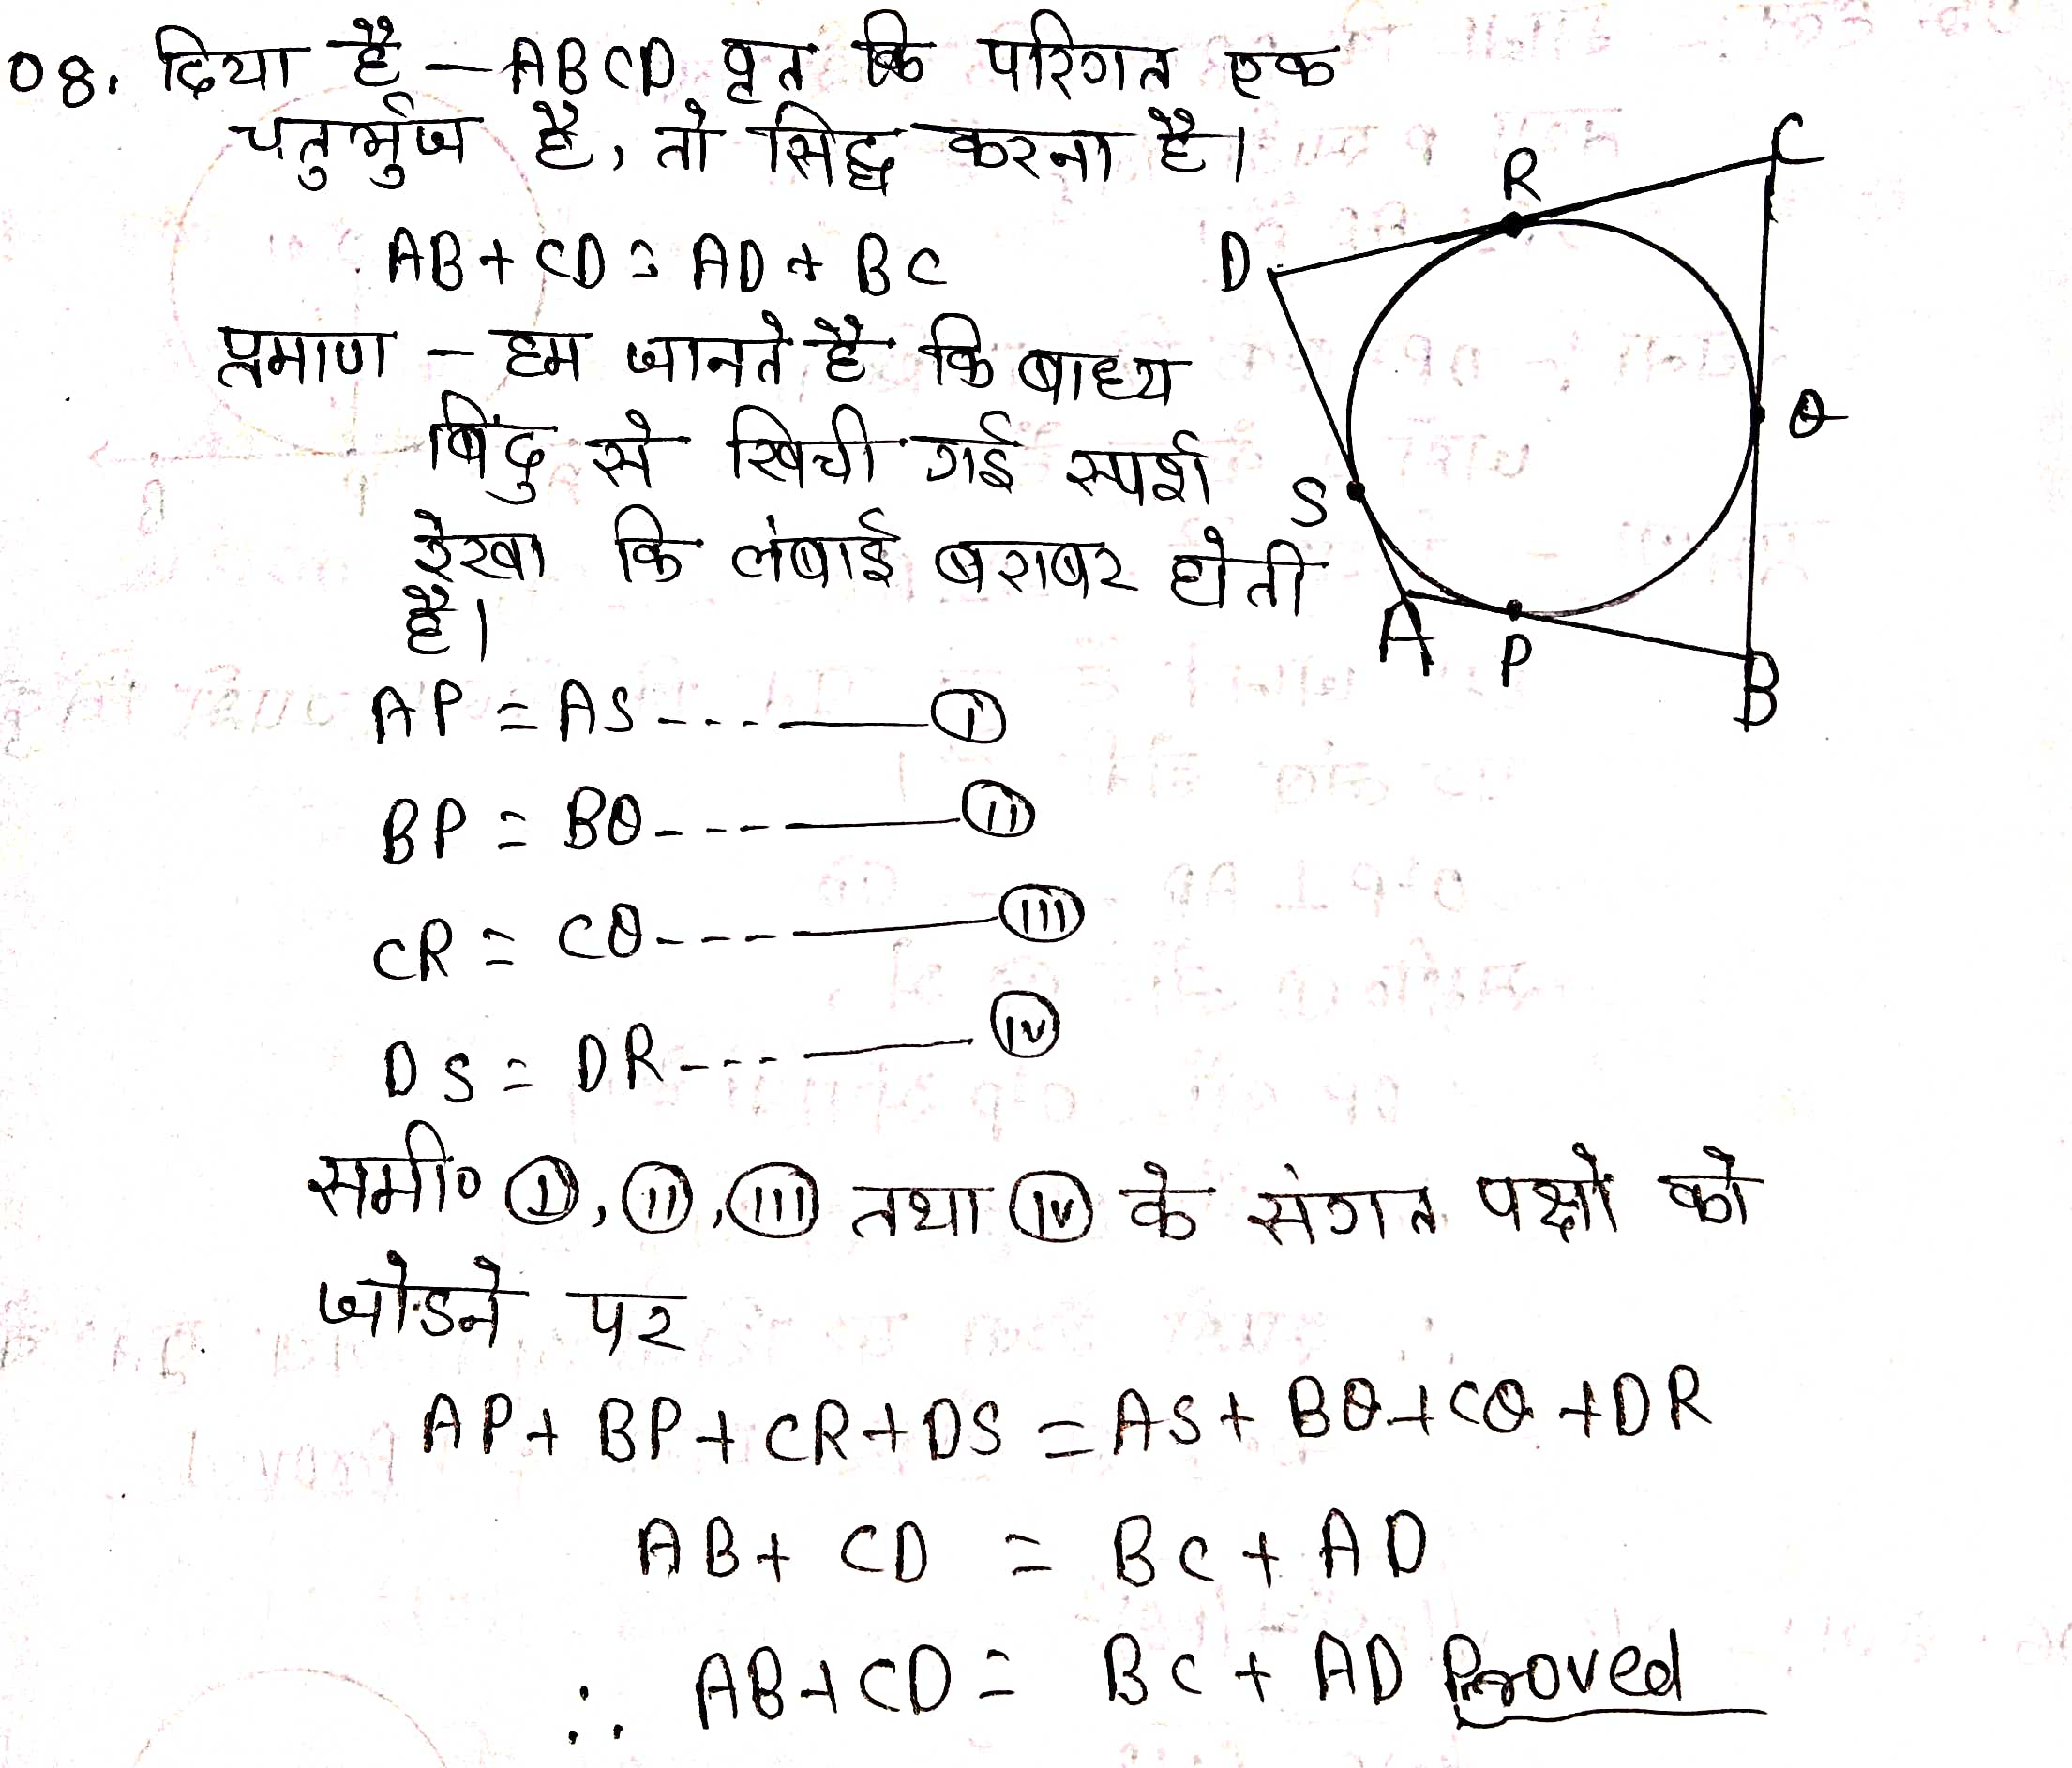 08. दिया है – ABCD वृत कि परिगत एक
चतुर्भुज है, तो सिद्ध करना है।
AB + CD = AD + BC
प्रमाण – हम जानते है कि बाह्य
बिंदु से खिची गई स्पर्श
रेखा कि लंबाई बराबर होती
है।
AP = AS ---- —— (I)
BP = BQ ---- —— (II)
CR = CQ ---- —— (III)
DS = DR ---- —— (IV)
समी० (I), (II), (III) तथा (IV) के संगत पक्षो को
जोडने पर
AP + BP + CR + DS = AS + BQ + CQ + DR
AB + CD = BC + AD
∴ AB + CD = BC + AD Proved
C
R
D
Q
S
A
P
B